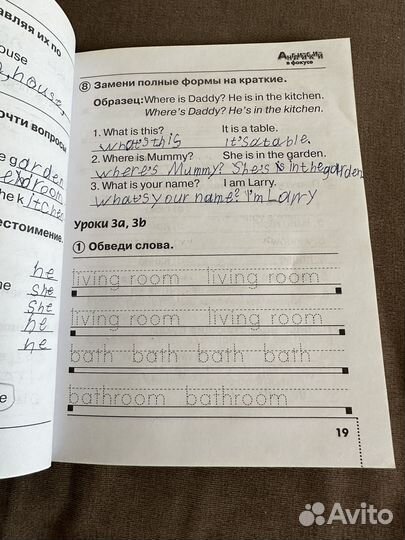 авляя их по
ouse
house,
очти вопросы
e garden
edroom
he kitchen
естоимение.
he
she
She
he
he
ne
e
Английский
в фокусе
8 Замени полные формы на краткие.
Образец: Where is Daddy? He is in the kitchen.
Where's Daddy? He's in the kitchen.
1. What is this? It is a table.
what's this It's a table.
2. Where is Mummy? She is in the garden.
where's Mummy? She's in the garden
3. What is your name? I am Larry.
what's your name? I'm Larry
Уроки 3a, 3b
1 Обведи слова.
living room living room
living room living room
bath bath bath bath
bathroom bathroom
19
Avito